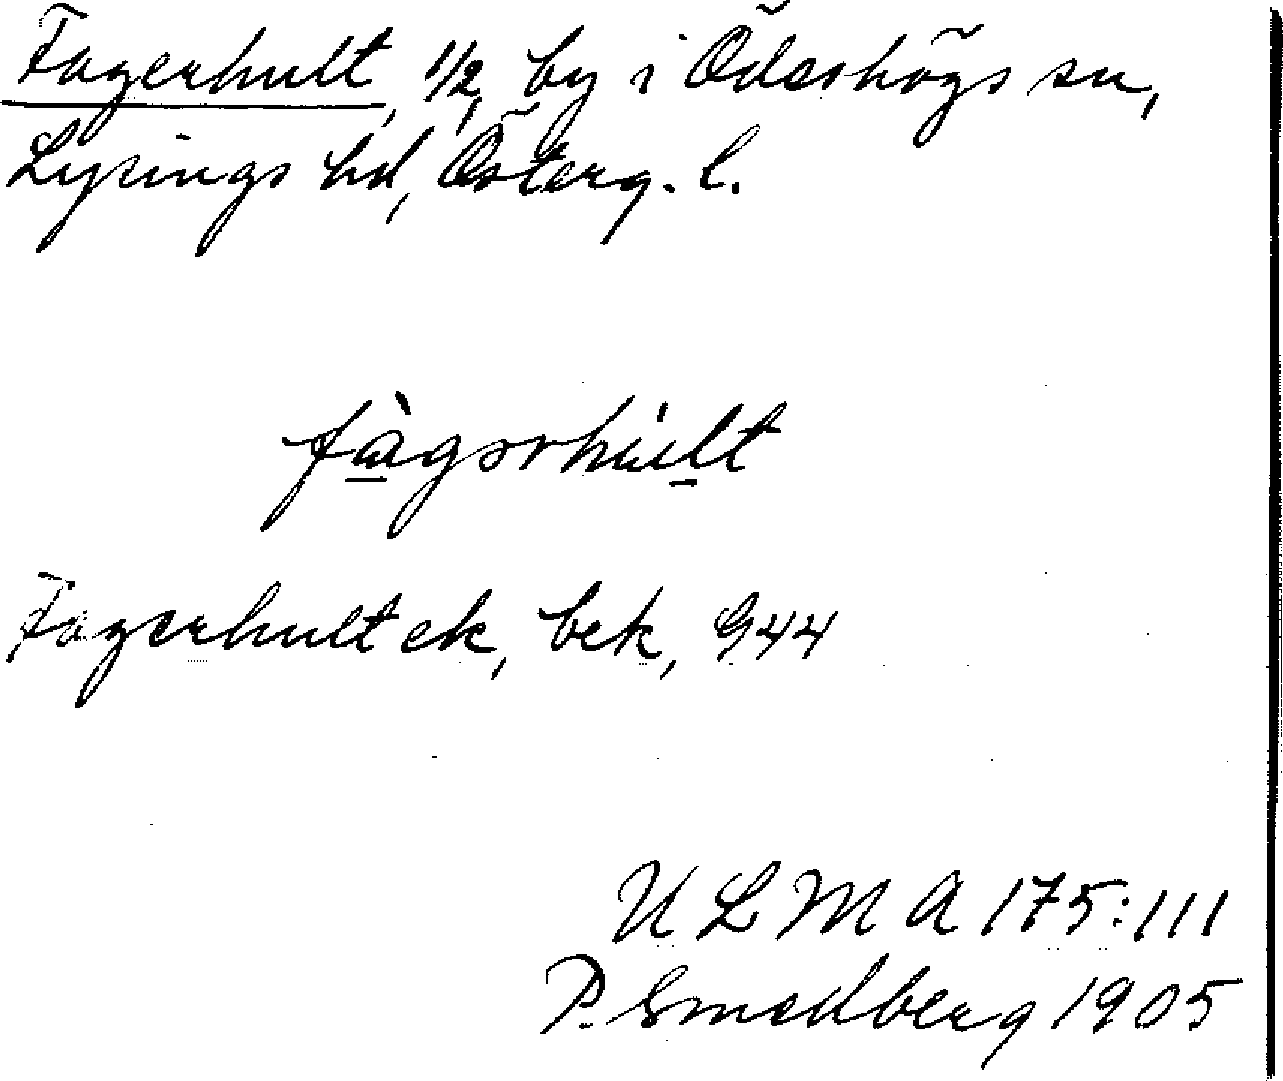 Fagerhult, 1/2, by i Ödeshögs sn,
Lysings hd, Österg. l.
fàgərhúlt
Fagerhult ek, bek, 944
ULMA 175:111
P. Smedberg 1905